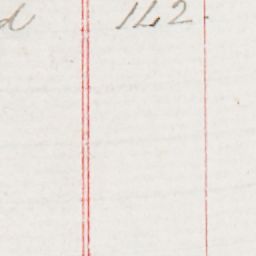 d 142